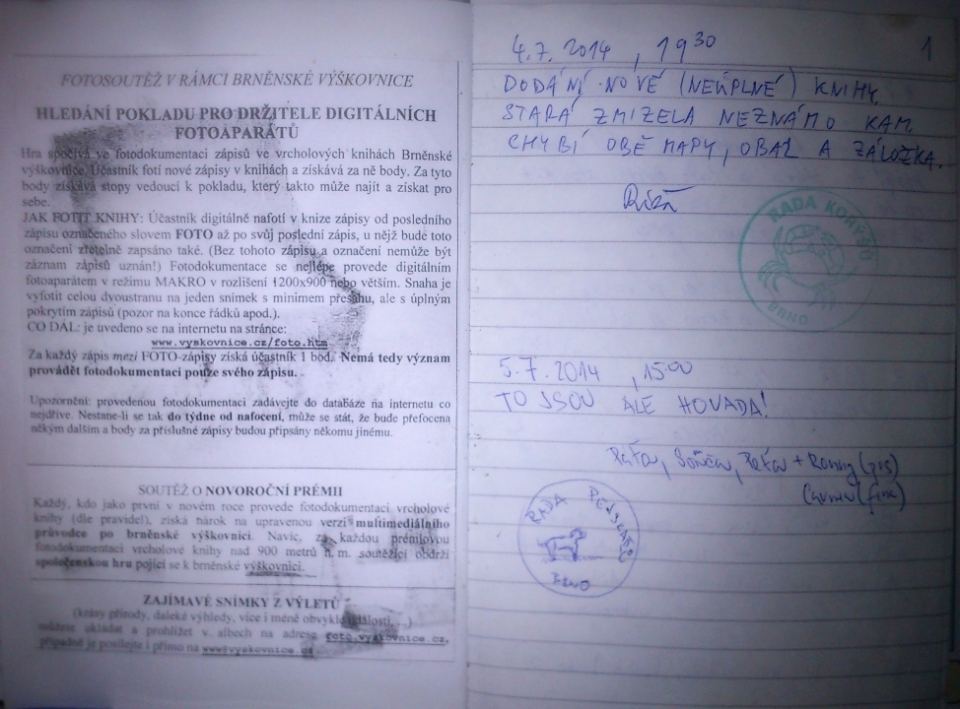 FOTOSOUTĚŽ V RÁMCI BRNĚNSKÉ VÝŠKOVNICE
HLEDÁNÍ POKLADU PRO DRŽITELE DIGITÁLNÍCH
FOTOAPARÁTŮ
Hra spočívá ve fotodokumentaci zápisů ve vrcholových knihách Brněnské
výškovnice. Účastník fotí nové zápisy v knihách a získává za ně body. Za tyto
body získává stopy vedoucí k pokladu, který takto může najít a získat pro
sebe.
JAK FOTIT KNIHU: Účastník digitálně nafotí v knize zápisy od posledního
zápisu označeného slovem FOTO až po svůj poslední zápis, u nějž bude toto
označení zřetelně zapsáno také. (Bez tohoto zápisu a označení nemůže být
záznam zápisů uznán!) Fotodokumentace se nejlépe provede digitálním
fotoaparátem v režimu MAKRO v rozlišení 1200x900 nebo větším. Snaha je
vyfotit celou dvoustranu na jeden snímek s minimem přesahu, ale s úplným
pokrytím zápisů (pozor na konce řádků apod.).
CO DÁL: je uvedeno se na internetu na stránce:
www.vyskovnice.cz/foto.htm
Za každý zápis mezi FOTO-zápisy získá účastník 1 bod. Nemá tedy význam
provádět fotodokumentaci pouze svého zápisu.
Upozornění: provedenou fotodokumentaci zadávejte do databáze na internetu co
nejdříve. Nestane-li se tak do týdne od nafocení, může se stát, že bude přefocena
někým dalším a body za příslušné zápisy budou připsány někomu jinému.
SOUTĚŽ O NOVOROČNÍ PRÉMII
Každý, kdo jako první v novém roce provede fotodokumentaci vrcholové
knihy (dle pravidel), získá nárok na upravenou verzi multimediálního
průvodce po brněnské výškovnici. Navíc, za každou prémiovou
fotodokumentaci vrcholové knihy nad 900 metrů n. m. soutěžící obdrží
společenskou hru pojící se k brněnské výškovnici.
ZAJÍMAVÉ SNÍMKY Z VÝLETŮ
(krásy přírody, daleké výhledy, více i méně obvyklé události, ...)
můžete ukládat a prohlížet v albech na adrese foto.vyskovnice.cz,
případně je posílejte i přímo na www@vyskovnice.cz
1
4.7.2014 , 19 30
DODÁNÍ NOVÉ (NEÚPLNÉ) KNIHY.
STARÁ ZMIZELA NEZNÁMO KAM.
CHYBÍ OBĚ MAPY, OBAL A ZÁLOŽKA.
RADA KORÝŠŮ
BRNO
5.7.2014 , 15 00
TO JSOU ALE HOVADA!
RADA
BRNO